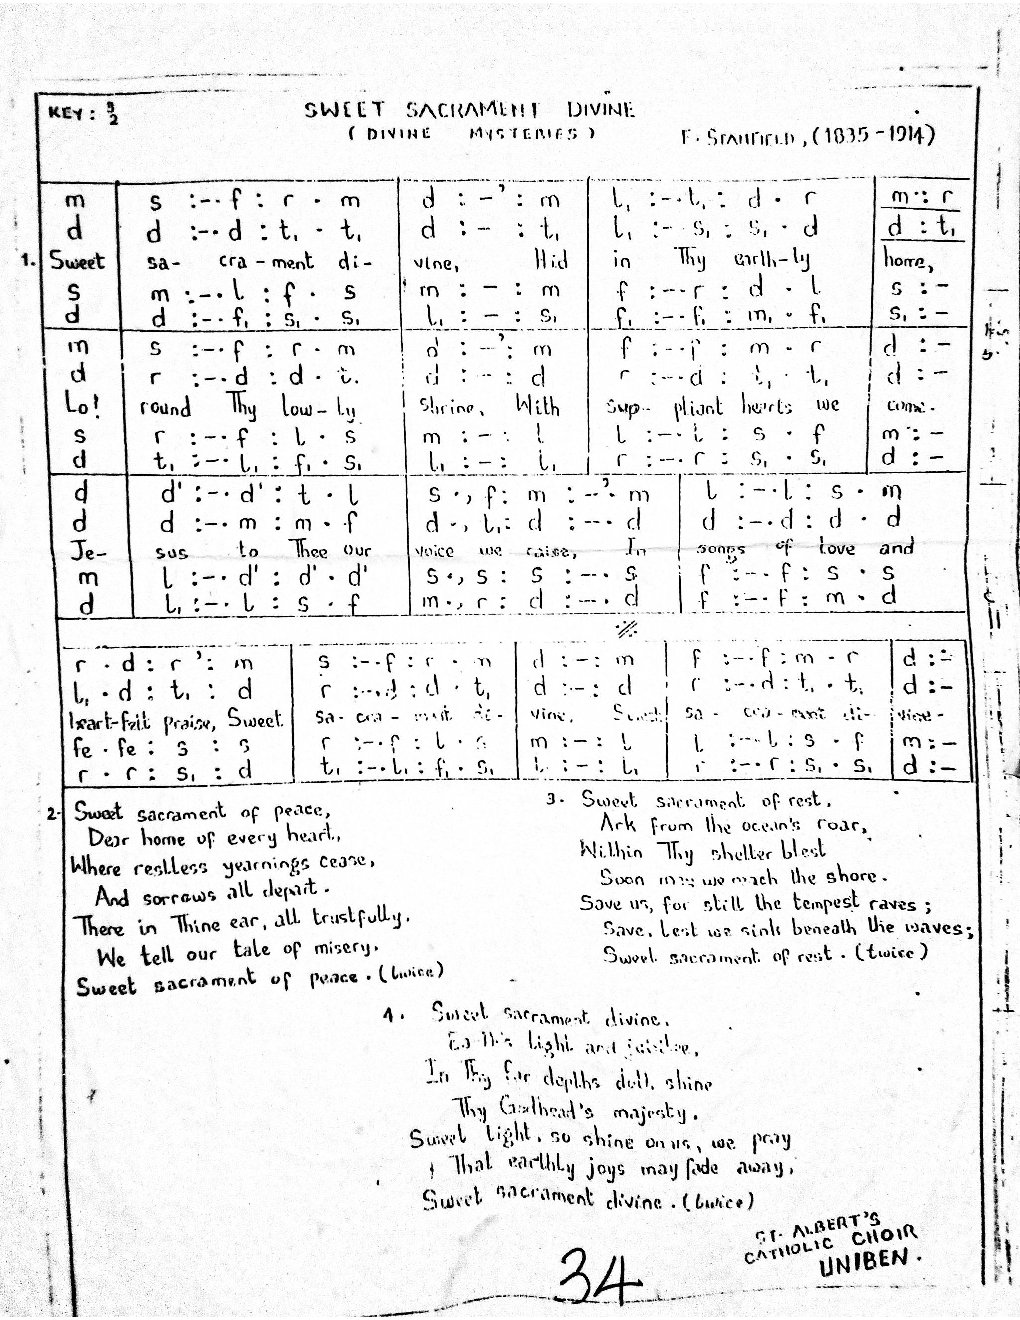 KEY: 3/2
SWEET SACRAMENT DIVINE
( DIVINE MYSTERIES )
F. STANFIELD, (1835-1914)
m s :-. f : r . m d : -' : m l, :-. t, : d . r m : r
d d :-. d : t, . t, d : - : t, l, :-. s, : s, . d d : t,
1. Sweet sa- cra-ment di- vine, Hid in Thy earth-ly home,
s m :-. l : f . s m : - : m f :-. r : d . l s : -
d d :-. f, : s, . s, l, : - : s, f, :-. f, : m, . f, s, : -
m s :-. f : r . m d : -' : m f :-. f : m . r d : -
d r :-. d : d . t, d : - : d r :-. d : t, . t, d : -
Lo! round Thy low-ly shrine, With sup- pliant hearts we come.
s r :-. f : l . s m : - : l l :-. l : s . f m : -
d t, :-. l, : f, . s, l, : - : l, r :-. r : s, . s, d : -
d d' :-. d' : t . l s ., f : m :-'. m l :-. l : s . m
d d :-. m : m . f d ., l, : d :-. d d :-. d : d . d
Je- sus to Thee our voice we raise, In songs of love and
m l :-. d' : d' . d' s ., s : s :-. s f :-. f : s . s
d l, :-. l : s . f m ., r : d :-. d f :-. f : m . d
r . d : r ' : m s :-. f : r . m d : - : m f :-. f : m . r d : -
l, . d : t, : d r :-. d : d . t, d : - : d r :-. d : t, . t, d : -
heart-felt praise, Sweet sa- cra-ment di- vine, Sweet sa- cra-ment di- vine-
fe . fe : s : s r :-. f : l . s m : - : l l :-. l : s . f m : -
r . r : s, : d t, :-. l, : f, . s, l, : - : l, r :-. r : s, . s, d : -
2- Sweet sacrament of peace,
Dear home of every heart,
Where restless yearnings cease,
And sorrows all depart.
There in Thine ear, all trustfully,
We tell our tale of misery.
Sweet sacrament of peace. (twice)
3. Sweet sacrament of rest,
Ark from the ocean's roar,
Within Thy shelter blest
Soon may we reach the shore.
Save us, for still the tempest raves;
Save, Lest we sink beneath the waves;
Sweet sacrament of rest. (twice)
4. Sweet sacrament divine,
Earth's light and jubilee,
In Thy far depths doth shine
Thy Godhead's majesty.
Sweet light, so shine on us, we pray
That earthly joys may fade away,
Sweet sacrament divine. (twice)
ST. ALBERT'S
CATHOLIC CHOIR
UNIBEN.
34